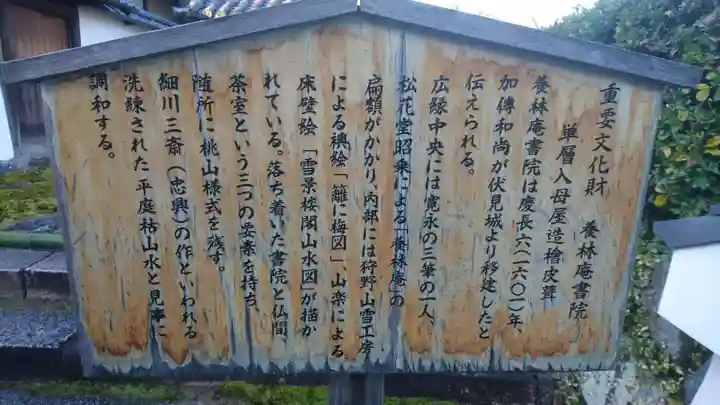 重要文化財　養林庵書院
単層入母屋造檜皮葺
養林庵書院は慶長六（一六〇一）年、
加傳和尚が伏見城より移建したと
伝えられる。
広縁中央には寛永の三筆の一人、
松花堂昭乗による「養林庵」の
扁額がかかり、内部には狩野山雪工房
による襖絵「籬に梅図」、山楽による
床壁絵「雪景楼閣山水図」が描か
れている。落ち着いた書院と仏間、
茶室という三つの要素を持ち、
随所に桃山様式を残す。
細川三斎（忠興）の作といわれる
洗練された平庭枯山水と見事に
調和する。